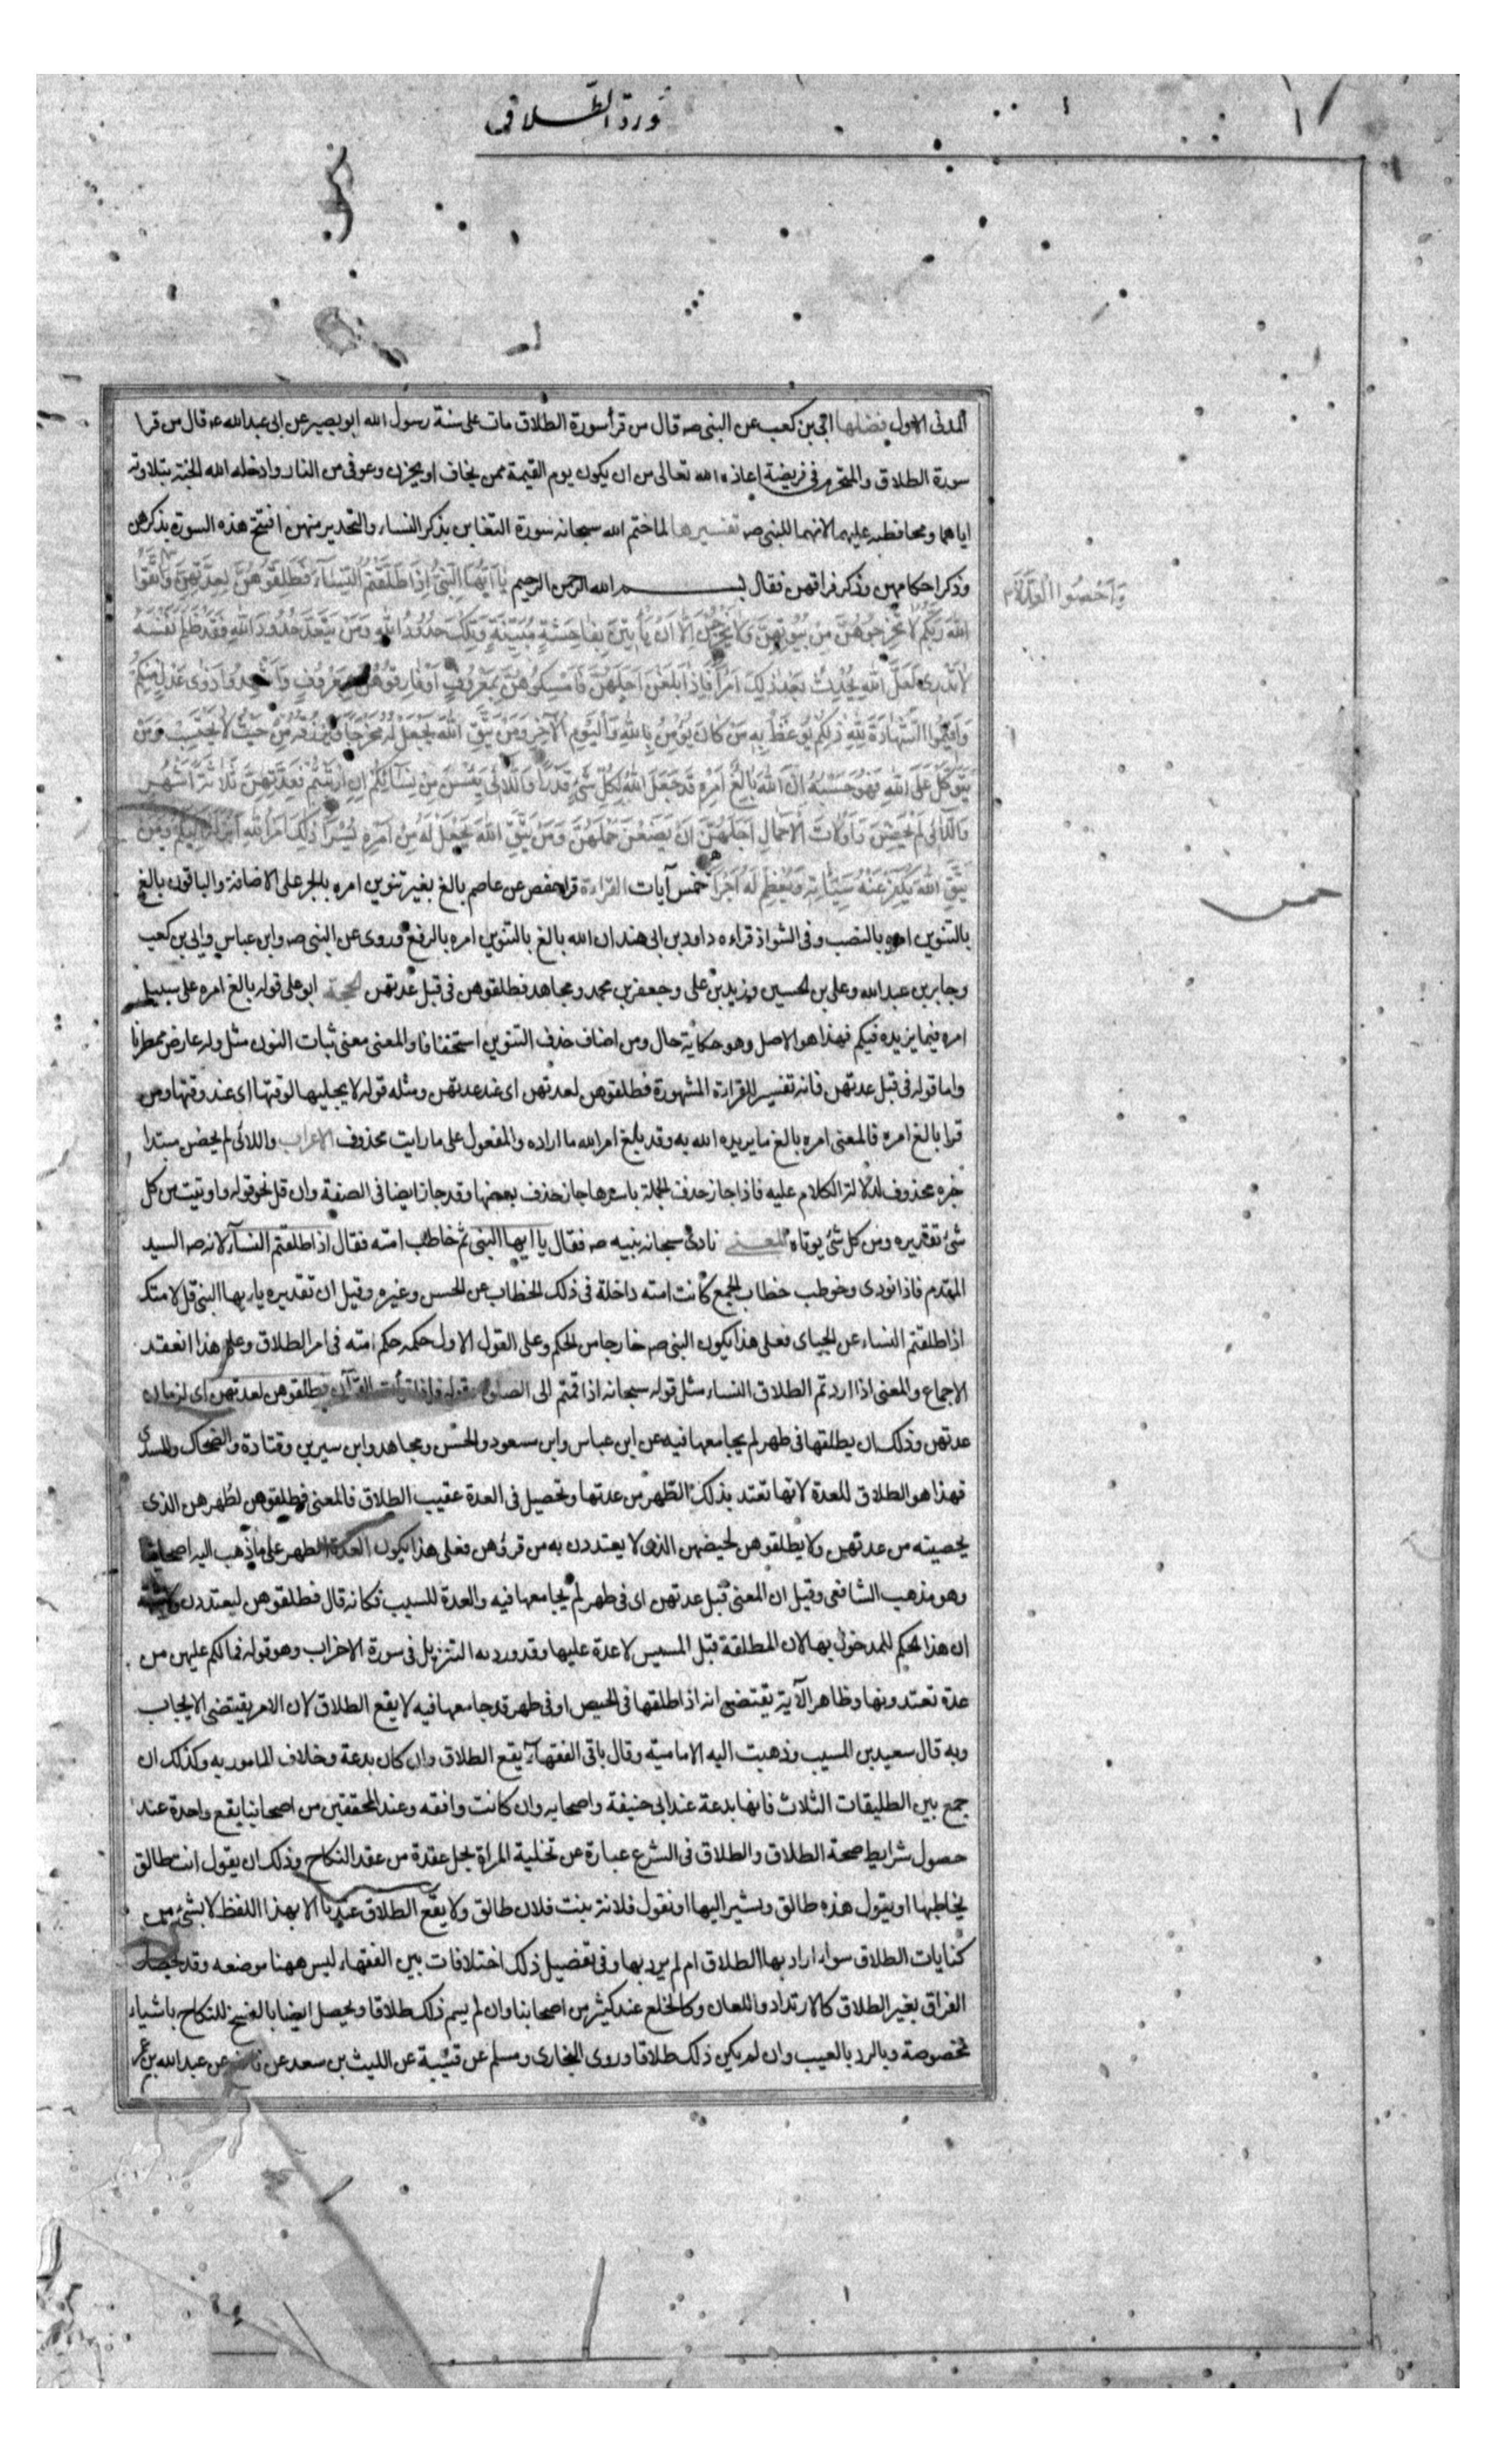 سورة الطلاق
المدنی الاول فضلها ابی بن کعب عن النبی صه قال من قرأ سورة الطلاق مات علی سنة رسول الله ابو بصیر عن ابی عبدالله عه قال من قرا
سورة الطلاق والتحریم فی فریضة اعاذه الله تعالی من ان یکون یوم القیمة ممن یخاف او یحزن وعوفی من النار وادخله الله الجنة بتلاوته
ایاهما ومحافظته علیهما لانهما للنبی صه تفسیرها لما ختم الله سبحانه سورة التغابن بذکر النساء والتحذیر منهن افتتح هذه السورة بذکرهن
وذکر احکامهن وذکر فراقهن فقال بسم الله الرحمن الرحیم یَا اَیُّهَا النَّبِیُّ اِذَا طَلَّقْتُمُ النِّسَاءَ فَطَلِّقُوهُنَّ لِعِدَّتِهِنَّ وَاتَّقُوا
وَاَحْصُوا الْعِدَّةَ
اللهَ رَبَّکُمْ لَا تُخْرِجُوهُنَّ مِنْ بُیُوتِهِنَّ وَلَا یَخْرُجْنَ اِلَّا اَنْ یَأْتِینَ بِفَاحِشَةٍ مُبَیِّنَةٍ وَتِلْکَ حُدُودُ اللهِ وَمَنْ یَتَعَدَّ حُدُودَ اللهِ فَقَدْ ظَلَمَ نَفْسَهُ
لَا تَدْرِی لَعَلَّ اللهَ یُحْدِثُ بَعْدَ ذٰلِکَ اَمْرًا فَاِذَا بَلَغْنَ اَجَلَهُنَّ فَاَمْسِکُوهُنَّ بِمَعْرُوفٍ اَوْ فَارِقُوهُنَّ بِمَعْرُوفٍ وَاَشْهِدُوا ذَوَیْ عَدْلٍ مِنْکُمْ
وَاَقِیمُوا الشَّهَادَةَ لِلّٰهِ ذٰلِکُمْ یُوعَظُ بِهِ مَنْ کَانَ یُؤْمِنُ بِاللهِ وَالْیَوْمِ الْآخِرِ وَمَنْ یَتَّقِ اللهَ یَجْعَلْ لَهُ مَخْرَجًا وَیَرْزُقْهُ مِنْ حَیْثُ لَا یَحْتَسِبُ وَمَنْ
یَتَوَکَّلْ عَلَی اللهِ فَهُوَ حَسْبُهُ اِنَّ اللهَ بَالِغُ اَمْرِهِ قَدْ جَعَلَ اللهُ لِکُلِّ شَیْءٍ قَدْرًا وَاللَّائِی یَئِسْنَ مِنْ نِسَائِکُمْ اِنِ ارْتَبْتُمْ فَعِدَّتُهُنَّ ثَلَاثَةُ اَشْهُرٍ
وَاللَّائِی لَمْ یَحِضْنَ وَاُولَاتُ الْاَحْمَالِ اَجَلُهُنَّ اَنْ یَضَعْنَ حَمْلَهُنَّ وَمَنْ یَتَّقِ اللهَ یَجْعَلْ لَهُ مِنْ اَمْرِهِ یُسْرًا ذٰلِکَ اَمْرُ اللهِ اَنْزَلَهُ اِلَیْکُمْ وَمَنْ
یَتَّقِ اللهَ یُکَفِّرْ عَنْهُ سَیِّئَاتِهِ وَیُعْظِمْ لَهُ اَجْرًا خمس آیات القراءة قرا حفص عن عاصم بالغ بغیر تنوین امره بالجر علی الاضافة والباقون بالغ
خمس
بالتنوین امره بالنصب وفی الشواذ قراءه داود بن ابی هند ان الله بالغ بالتنوین امره بالرفع وروی عن النبی صه وابن عباس وابی بن کعب
وجابر بن عبدالله وعلی بن الحسین وزید بن علی وجعفر بن محمد ومجاهد فطلقوهن فی قبل عدتهن الحجة ابو علی قوله بالغ امره علی سبیل
امره فیما یزیده فیکم فهذا هو الاصل وهو حکایة حال ومن اضاف حذف التنوین استخفافا والمعنی معنی ثبات النون مثل وله عارض ممطرنا
واما قوله فی قبل عدتهن فانه تفسیر للقراءة المشهورة فطلقوهن لعدتهن ای عند عدتهن ومثله قوله لا یجلیها لوقتها ای عند وقتها ومن
قرا بالغ امره فالمعنی امره بالغ ما یریده الله به وقد بلغ امر الله ما اراده والمفعول علی ما رایت محذوف الاعراب واللائی لم یحضن مبتدا
خبره محذوف لدلالة الکلام علیه فاذا جاز حذف الجملة باسرها جاز حذف بعضها وقد جاز ایضا فی الصفة وان قل نحو قوله واوتیت من کل
شئ تقدیره ومن کل شئ یوتاه المعنی نادی سبحانه نبیه صه فقال یا ایها النبی ثم خاطب امته فقال اذا طلقتم النساء لانه صه السید
المقدم فاذا نودی وخوطب خطاب الجمع کانت امته داخلة فی ذلک الخطاب عن الحسن وغیره وقیل ان تقدیره یا ایها النبی قل لامتک
اذا طلقتم النساء عن الجبائی فعلی هذا یکون النبی صه خارجا من الحکم وعلی القول الاول حکمه حکم امته فی امر الطلاق وعلی هذا انعقد
الاجماع والمعنی اذا اردتم الطلاق النساء مثل قوله سبحانه اذا قمتم الی الصلوة وقوله فاذا قرأت القرآن فطلقوهن لعدتهن ای لزمان
عدتهن وذلک ان یطلقها فی طهر لم یجامعها فیه عن ابن عباس وابن مسعود والحسن ومجاهد وابن سیرین وقتادة والضحاک والسدی
فهذا هو الطلاق للعدة لانها تعتد بذلک الطهر من عدتها وتحصیل فی العدة عقیب الطلاق فالمعنی فطلقوهن لطهرهن الذی
یحصینه من عدتهن ولا یطلقوهن لحیضهن الذی لا یعتددن به من قرؤهن فعلی هذا یکون العدة الطهر علی ما ذهب الیه اصحابنا
وهو مذهب الشافعی وقیل ان المعنی قبل عدتهن ای فی طهر لم یجامعها فیه والعدة للسبب فکانه قال فطلقوهن لیعتددن
ان هذا الحکم للمدخول بها لان المطلقة قبل المسیس لا عدة علیها وقد ورد به التنزیل فی سورة الاحزاب وهو قوله فما لکم علیهن من
عدة تعتدونها وظاهر الآیة یقتضی انه اذا طلقها فی الحیض او فی طهر قد جامعها فیه لا یقع الطلاق لان الامر یقتضی الایجاب
وبه قال سعید بن المسیب وذهبت الیه الامامیة وقال باقی الفقهاء یقع الطلاق وان کان بدعة وخلاف المامور به وکذلک ان
جمع بین الطلیقات الثلاث فانها بدعة عند ابی حنیفة واصحابه وان کانت واقعه وعند المحققین من اصحابنا یقع واحدة عند
حصول شرایط صحة الطلاق والطلاق فی الشرع عبارة عن تخلیة المراة بحل عقدة من عقد النکاح وذلک ان یقول انت طالق
یخاطبها او یقول هذه طالق ویشیر الیها او تقول فلانة بنت فلان طالق ولا یقع الطلاق عندنا الا بهذا اللفظ لا بشئ من
کنایات الطلاق سواء اراد بها الطلاق ام لم یرد بها وفی تفضیل ذلک اختلافات بین الفقهاء لیس ههنا موضعه وقد یحصل
الفراق بغیر الطلاق کالارتداد واللعان وکالخلع عند کثیر من اصحابنا وان لم یسم ذلک طلاقا ویحصل ایضا بالفسخ للنکاح باشیاء
مخصوصة وبالرد بالعیب وان لم یکن ذلک طلاقا وروی البخاری ومسلم عن قتیبة عن اللیث بن سعد عن نافع عن عبدالله بن عمر